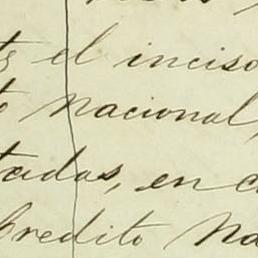 el inciso
nacional,
tadas, en
Credito Na